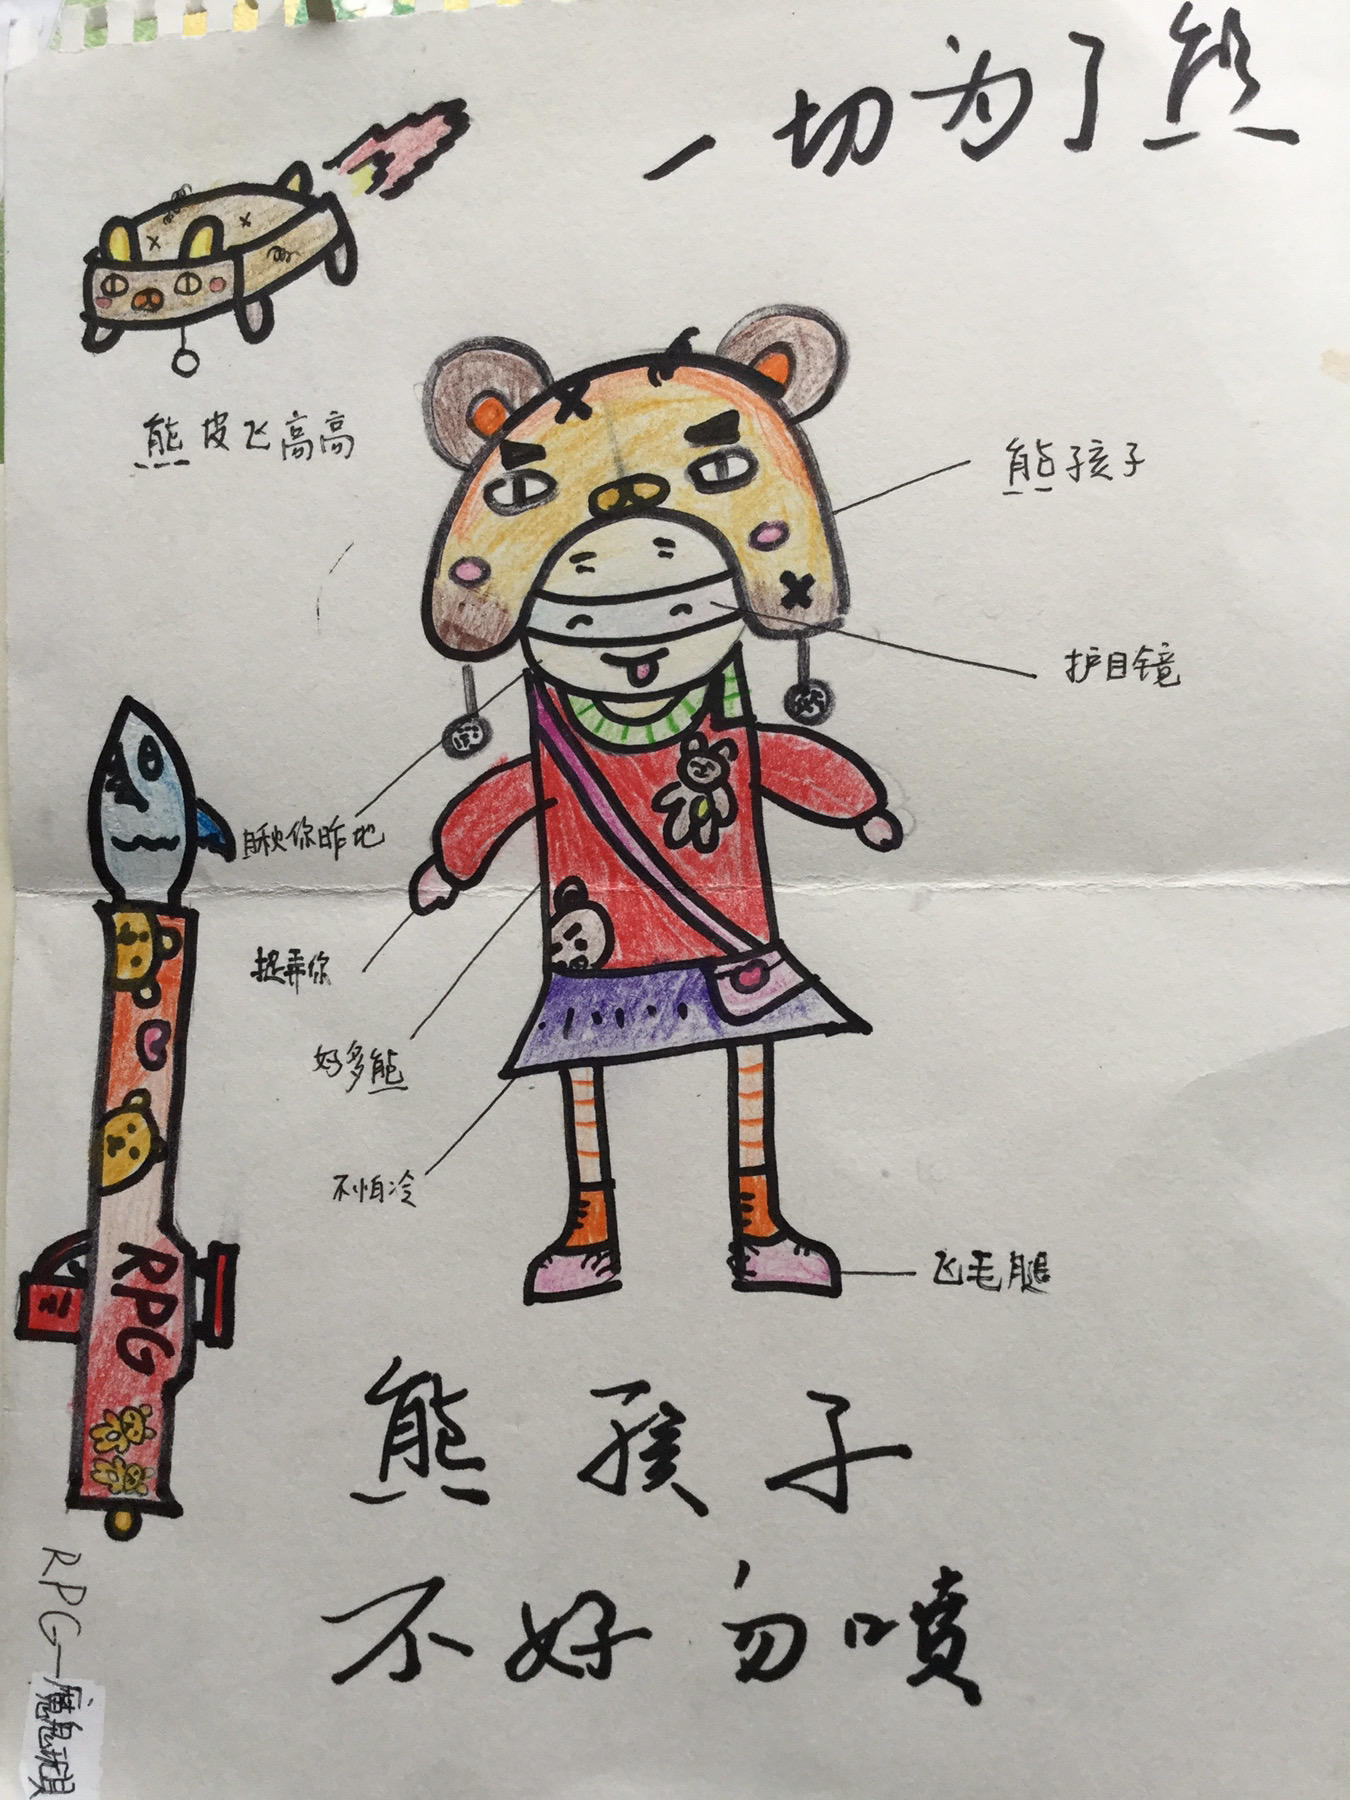 一切为了熊
熊皮飞高高
熊孩子
护目镜
瞅你咋地
捉弄你
好多熊
不怕冷
飞毛腿
RPG
熊孩子
不好勿喷
RPG—魔鬼玩具